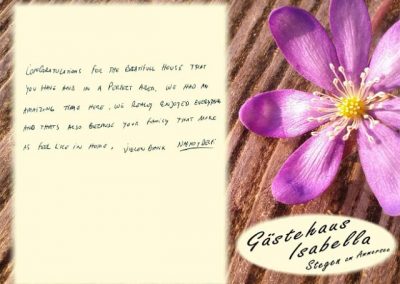 CONGRATULATIONS FOR THE BEATIFUL HOUSE THAT
YOU HAVE AND IN A PERFECT AREA, WE HAD AN
AMAZING TIME HERE, WE REALLY ENJOYED EVERYTHING
AND THATS ALSO BECAUSE YOUR FAMILY THAT MAKE
AS FEEL LIKE IN HOME.
Gästehaus
Isabella
Stegen am Ammersee